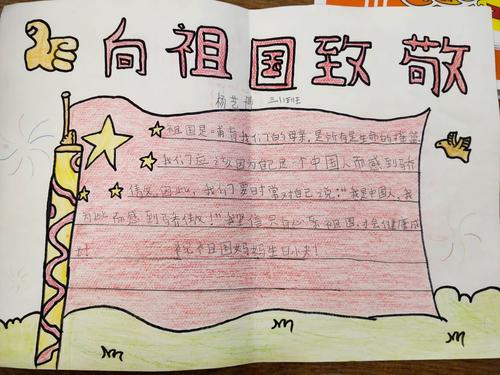 向祖国致敬
杨艺 三(1)班
祖国是哺育我们的母亲,是所有生命的摇篮
我们应该因为自己是一个中国人而感到骄
傲。因此,我们要时常对自己说:“我是中国人,我
为此而感到骄傲!”我坚信只有心乐祖国,才会健康成
长! 祝祖国妈妈生日快!